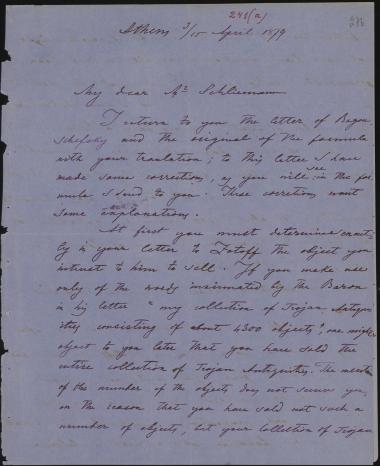 241(a)
Athens 3/15 April 1879
My dear Mr Schliemann
I return to you the letter of Baron
and the original of the formula
with your translation; to this letter I have
made some corrections, as you will see in the for-
mula I send to you. These corrections want
some explanations.
At first you must determine exact-
ly in your letter to the object you
intrust to him to sell. If you made use
only of the words insinuated by the Baron
in his letter "my collection of Trojan Antiqui-
ties consisting of about 4300 objects", one might
object to you later that you have sold the
entire collection of Trojan Antiquities. The
of the number of the objects does not you,
on the reason that you have sold not such a
number of objects, but your Collection of Trojan